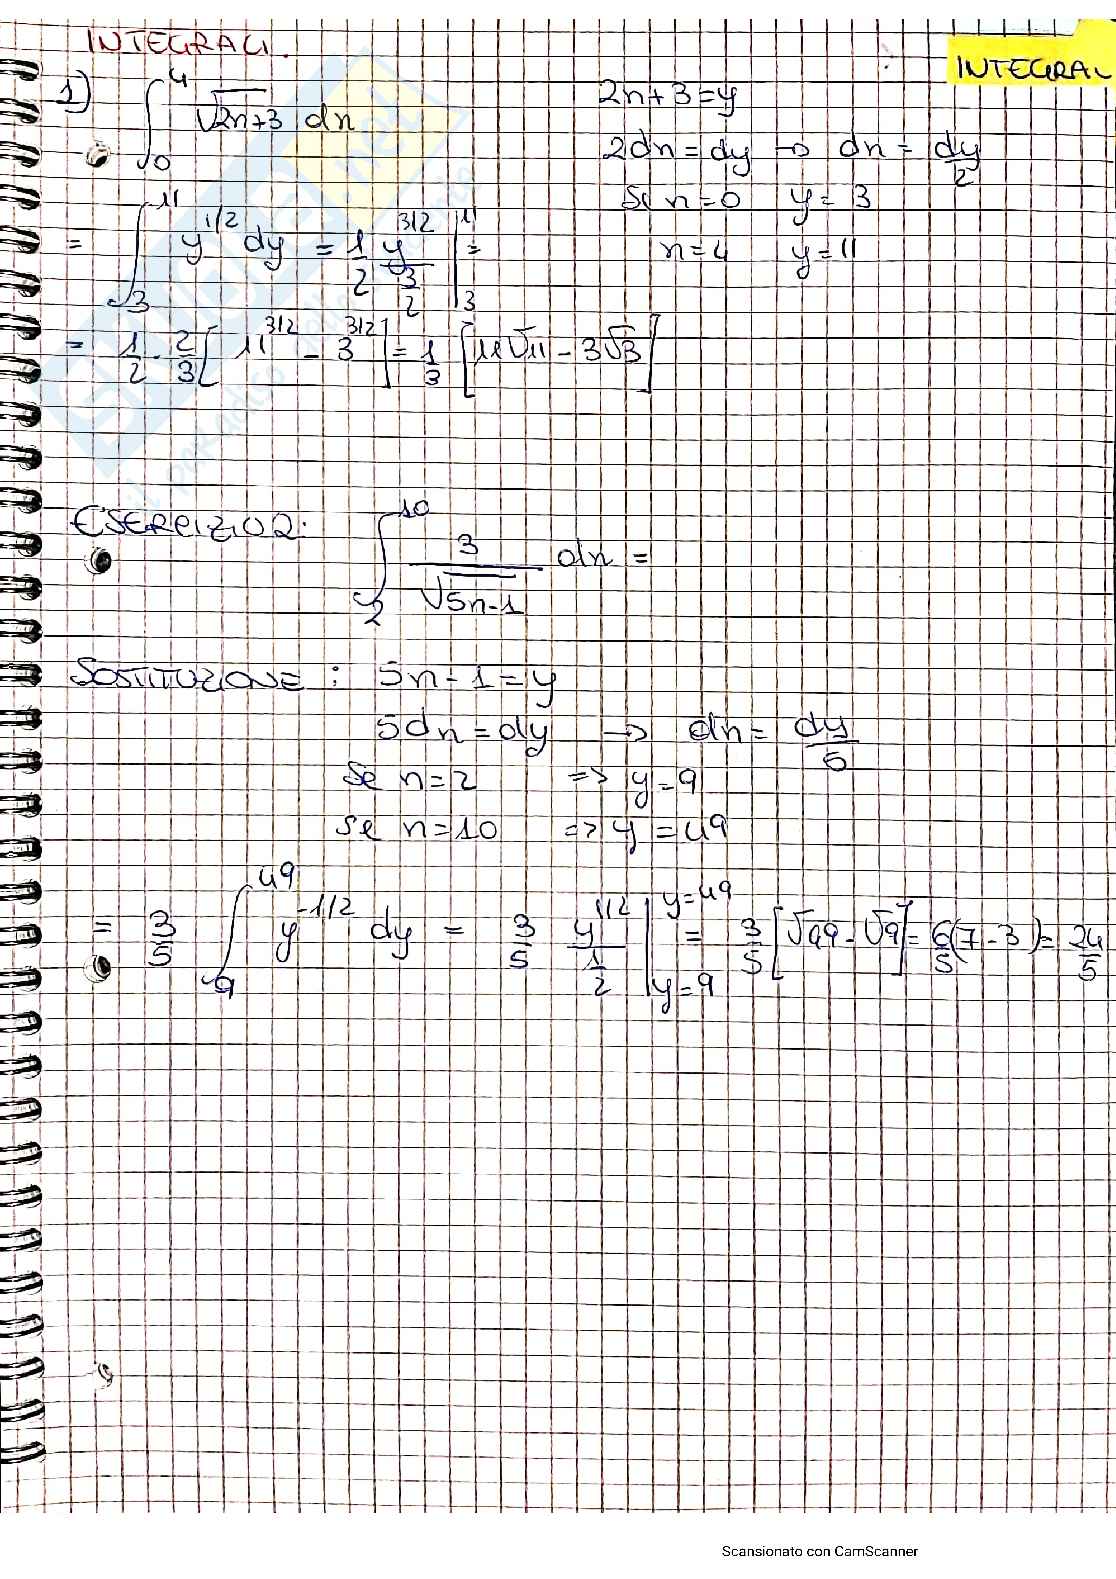 INTEGRALI.
INTEGRAL
1) ∫₀⁴ √2n+3 dn
2n+3=y
2dn=dy → dn = dy/2
Se n=0 y=3
n=4 y=11
= ∫₃¹¹ y^1/2 dy = 1/2 y^3/2 / 3/2 |₃¹¹ =
= 1/2 · 2/3 [11^3/2 - 3^3/2] = 1/3 [11√11 - 3√3]
ESERCIZIO 2:
∫₂¹⁰ 3/√5n-1 dn =
SOSTITUZIONE: 5n-1=y
5dn=dy → dn= dy/5
Se n=2 => y=9
Se n=10 => y=49
= 3/5 ∫₉⁴⁹ y^-1/2 dy = 3/5 y^1/2 / 1/2 |y=9 y=49 = 3/5 [√49-√9] = 6/5 (7-3) = 24/5
Scansionato con CamScanner